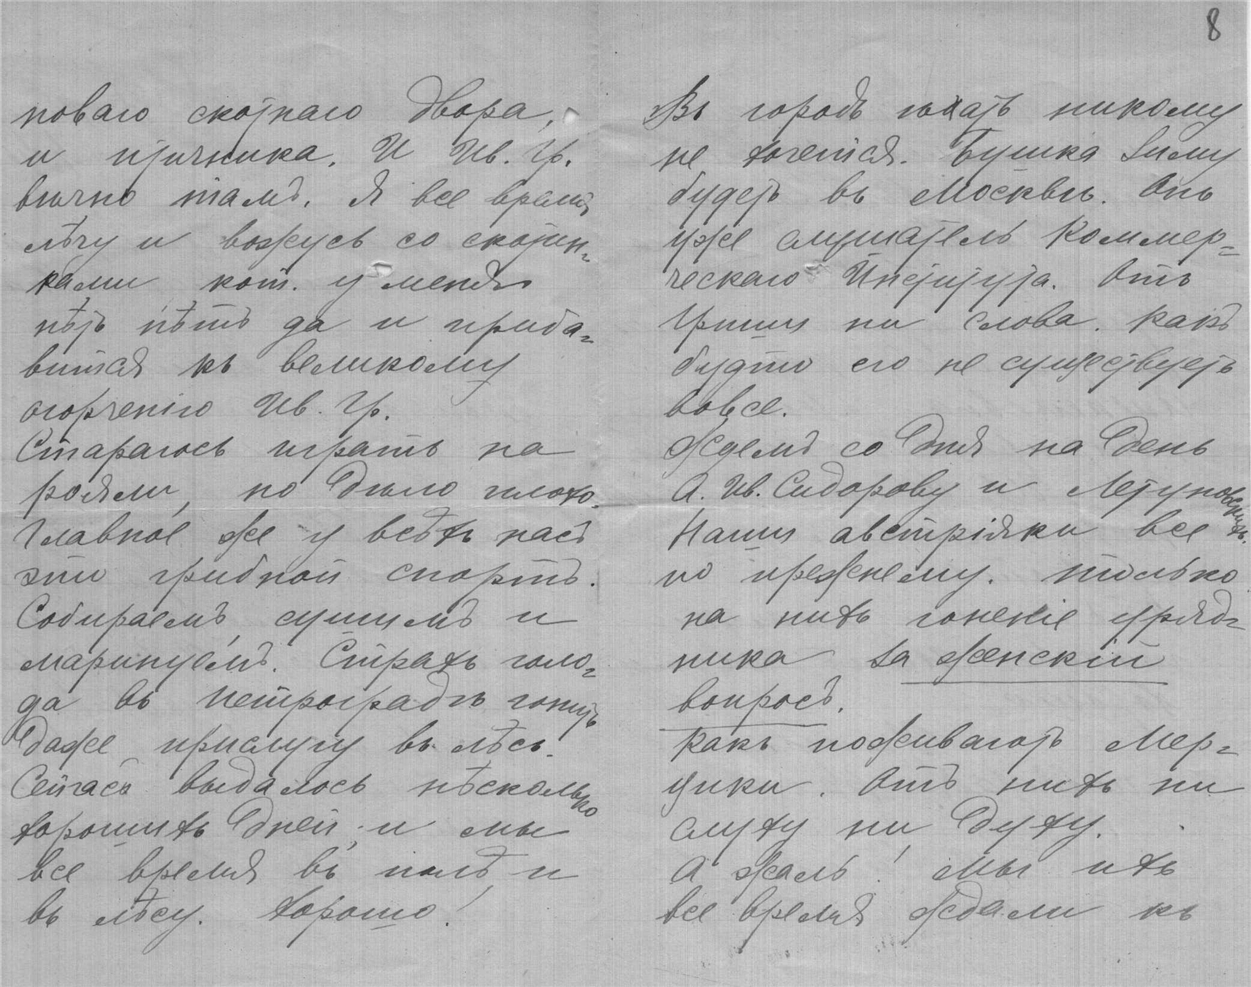 8
новаго скотнаго двора,
и птичника. И Ив. Гр.
вѣчно тамъ. Я все время
лѣчу и вожусь со скотин-
ками кот. у меня
нѣтъ нѣтъ да и приба-
вится къ великому
огорченію Ив. Гр.
Стараюсь играть на
рояли, но дѣло плохо.
Главное же у всѣхъ насъ
это грибной спортъ.
Собираемъ, сушимъ и
маринуемъ. Страхъ голо-
да въ Петроградѣ гонитъ
даже прислугу въ лѣсъ.
Сейчасъ выдалось нѣсколько
хорошихъ дней, и мы
все время въ полѣ и
въ лѣсу. Хорошо!
Въ городъ ѣхать никому
не хочется. Бушка зиму
будетъ въ Москвѣ. Онъ
уже слушатель Коммер-
ческаго Института. Отъ
Гриши ни слова. Какъ
будто его не существуетъ
вовсе.
Ждемъ со дня на день
А. Ив. Сидорову и
Наши австріяки все
по прежнему. Только
на нихъ гоненіе уряд-
ника за женскій
вопросъ.
Какъ поживаютъ Мер-
цики. Отъ нихъ ни
слуху ни духу.
А жаль! Мы ихъ
все время ждали къ